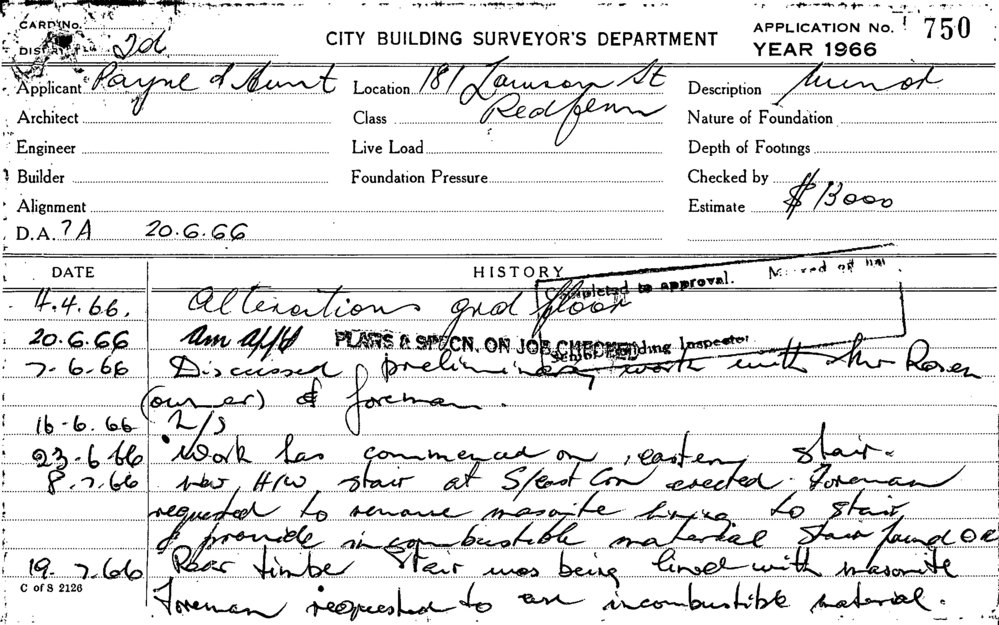 CARD No.
DISTRICT 2d
CITY BUILDING SURVEYOR'S DEPARTMENT
APPLICATION No. 750
YEAR 1966
Applicant Payne & Hunt Location 181 Lawson St Description Minor
Redfern
Architect Class Nature of Foundation
Engineer Live Load Depth of Footings
Builder Foundation Pressure Checked by
Alignment Estimate $13000
D.A. ?A 20.6.66
DATE HISTORY
Completed to approval.
4.4.66. Alterations grnd floor
20.6.66 Am app'd PLANS & SPECN. ON JOB CHECKED
Senior Building Inspector
7-6-66 Discussed preliminary work with Mr Rosen
(owner) & foreman.
16-6.66 L/S
23-6 66 Work has commenced on eastern stair.
8.7.66 New H/W stair at S/east Crn erected. Foreman
requested to remove masonite lining to stair
& provide incombustible material Stair found OK
19.7.66 Rear timber stair was being lined with masonite
C of S 2126
Foreman requested to use incombustible material.